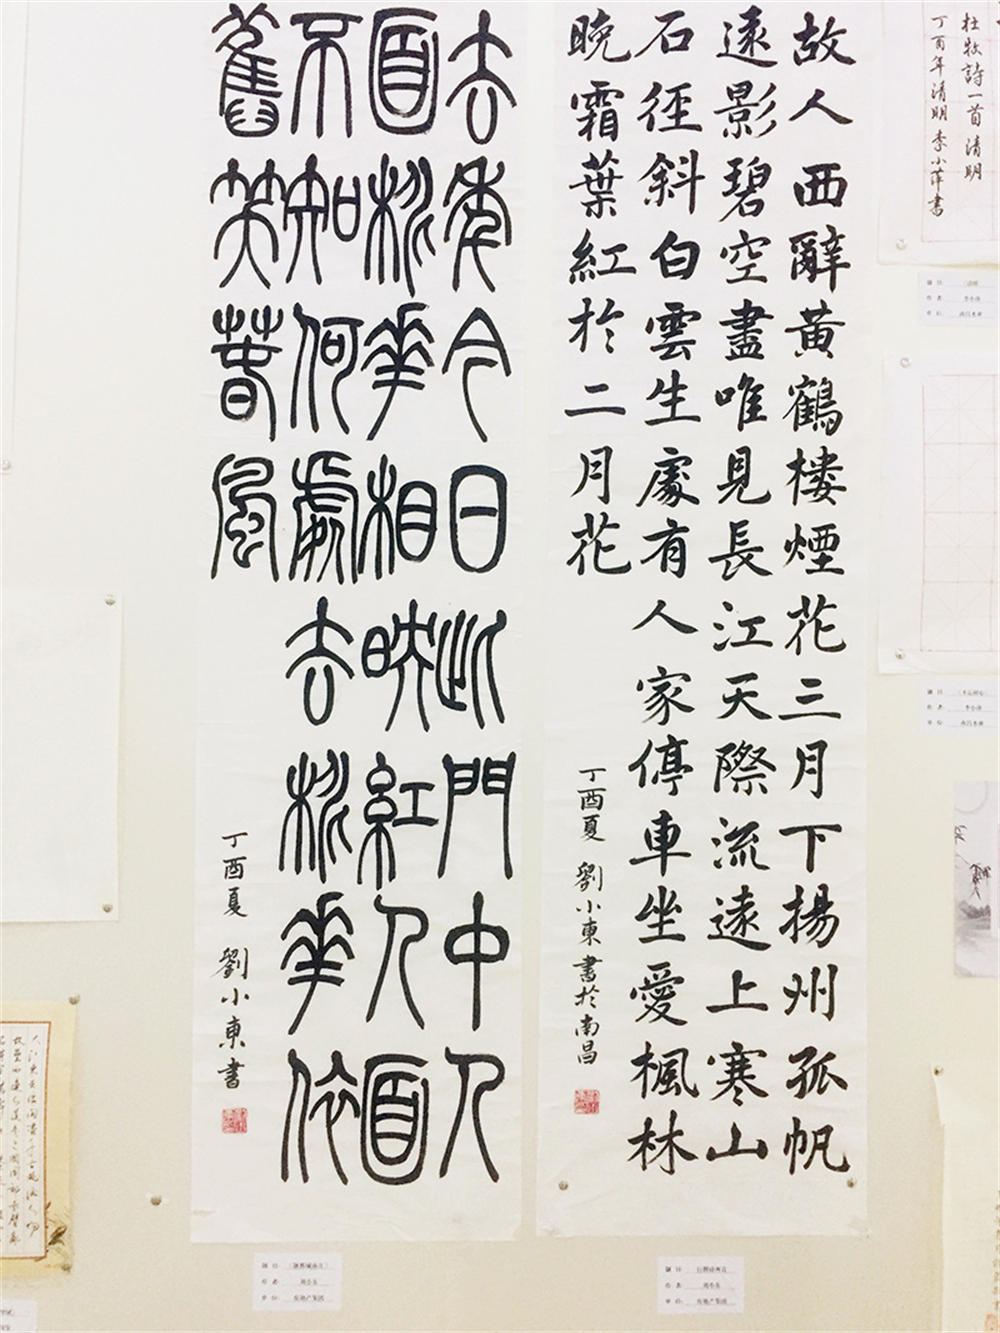 杜牧詩一首 清明
丁酉年清明 李小萍書
故人西辭黃鶴樓煙花三月下揚州孤帆
遠影碧空盡唯見長江天際流遠上寒山
石徑斜白雲生處有人家停車坐愛楓林
晚霜葉紅於二月花
丁酉夏 劉小東書於南昌
去年今日此門中人
面桃花相映紅人面
不知何處去桃花依
舊笑春風
丁酉夏 劉小東書